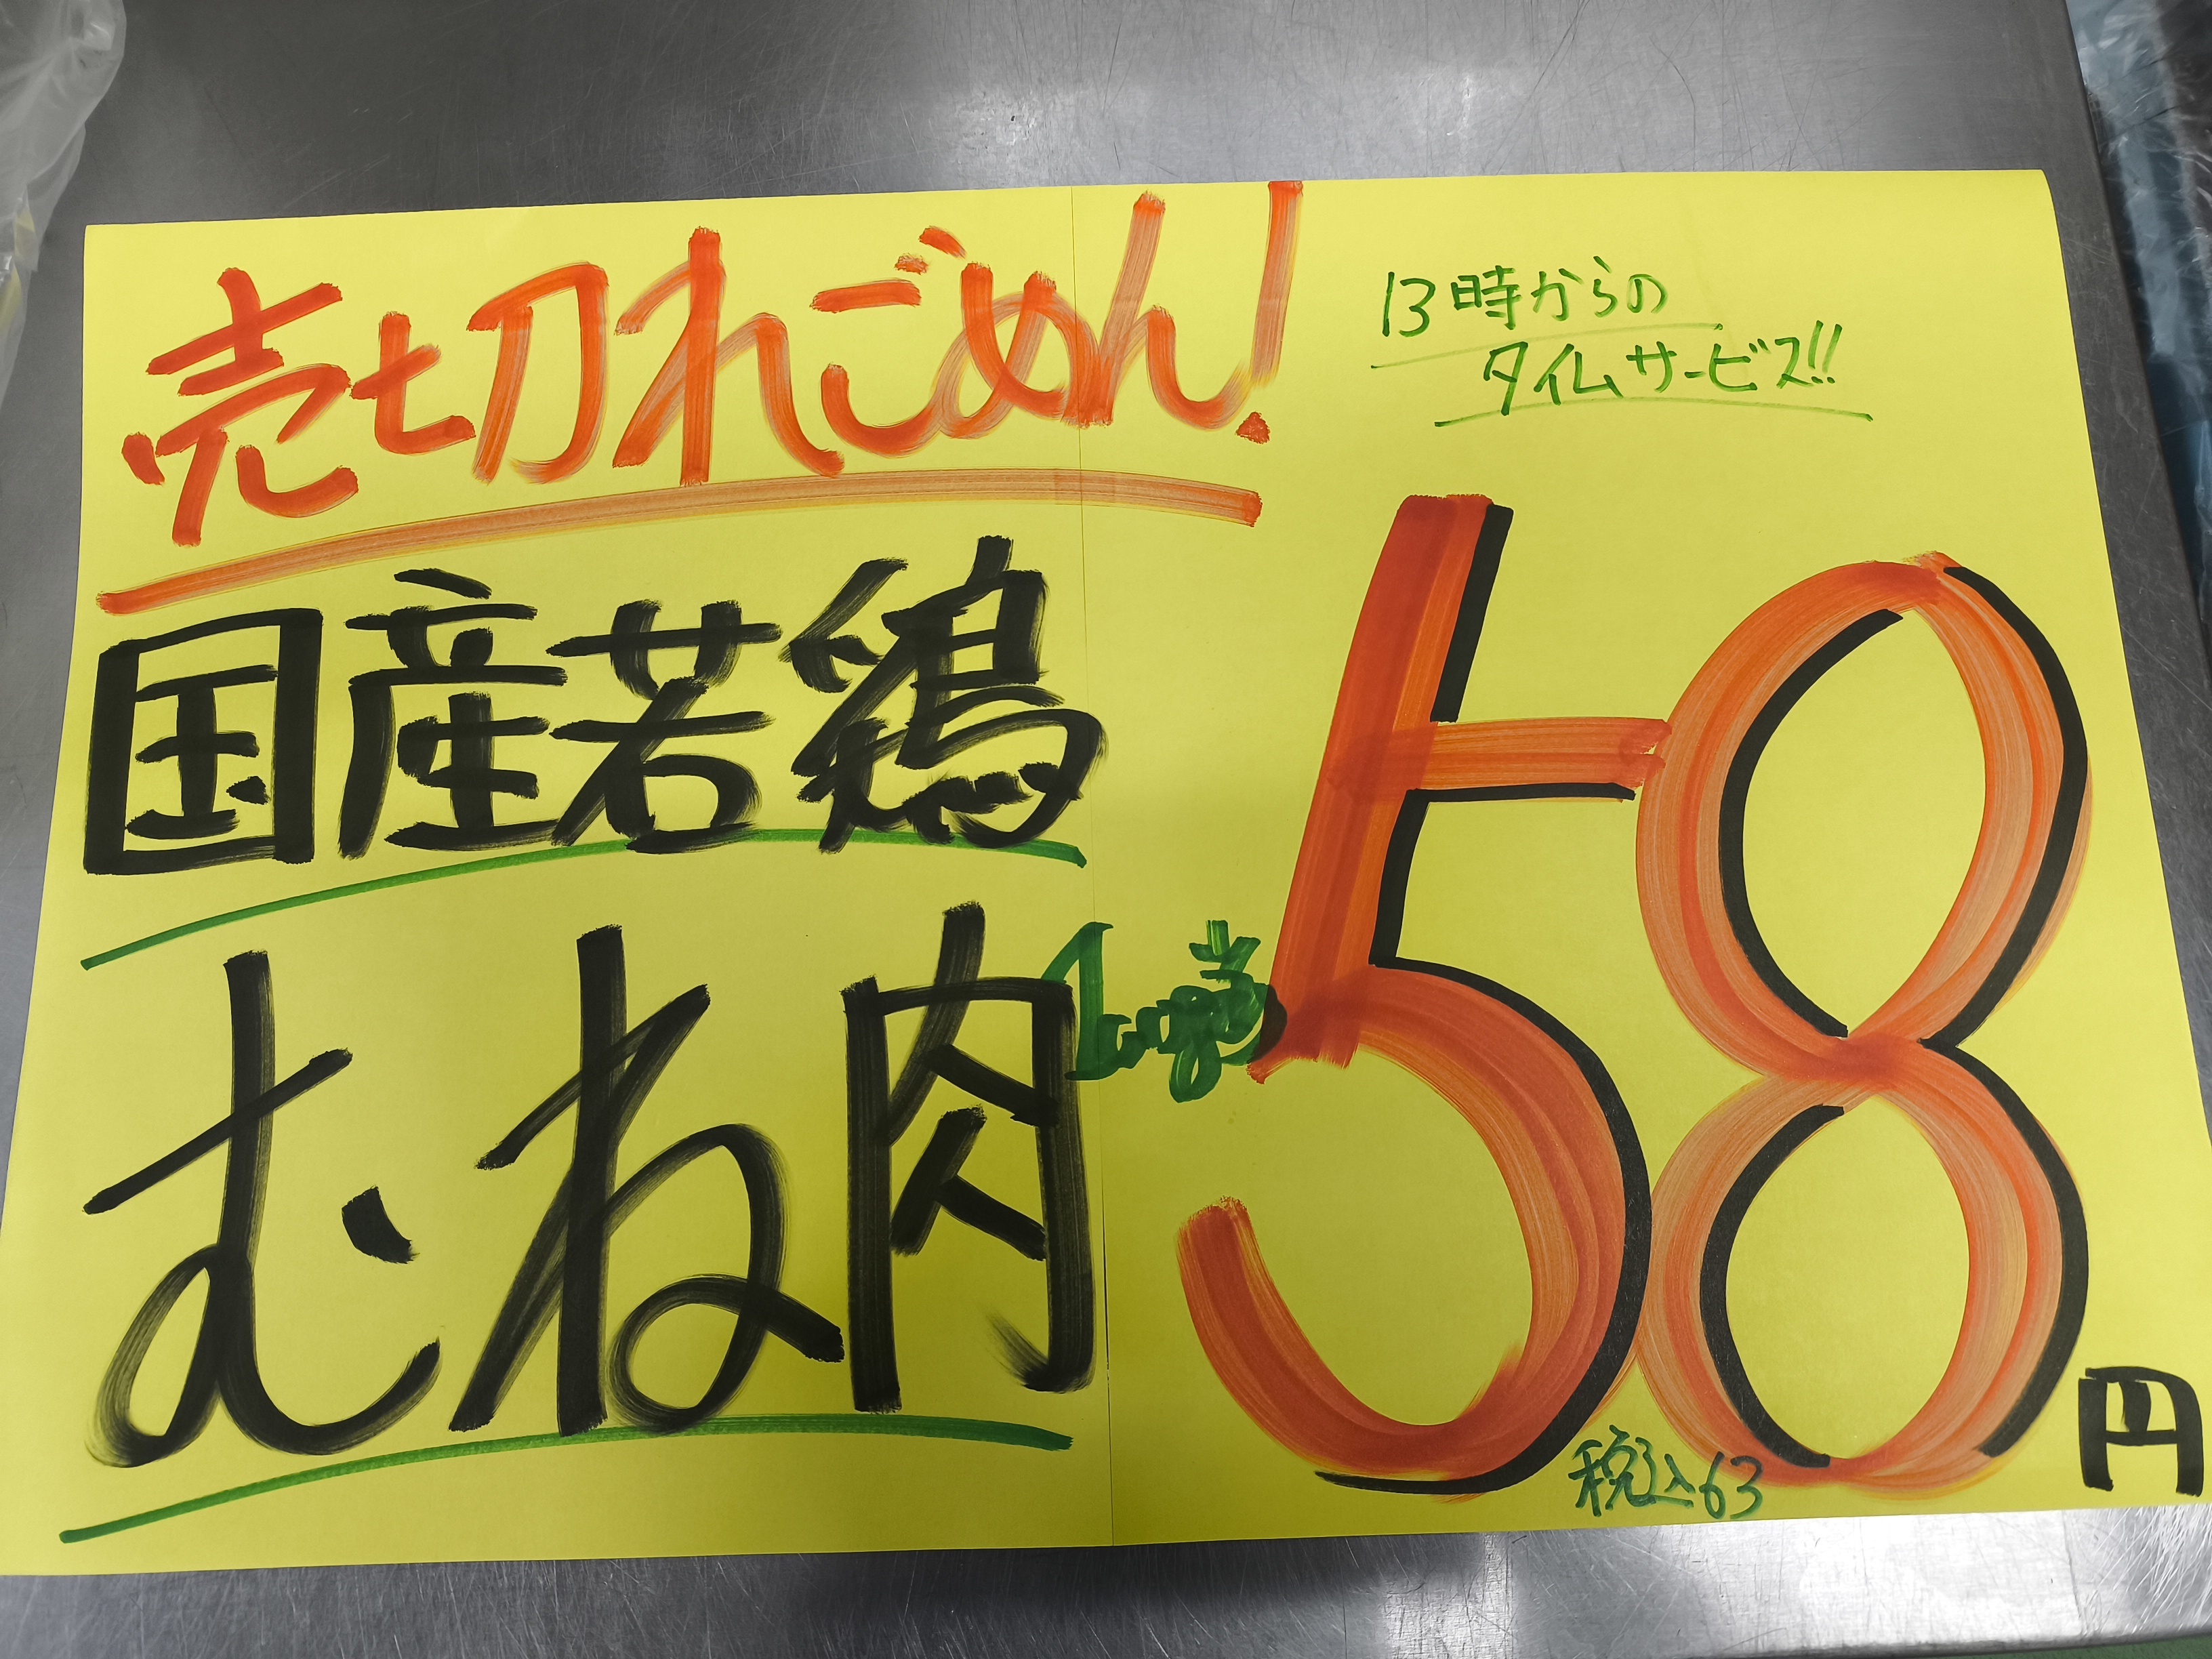 売切れごめん!
13時からの
タイムサービス!!
国産若鶏
むね肉
100gあたり
58円
税込63